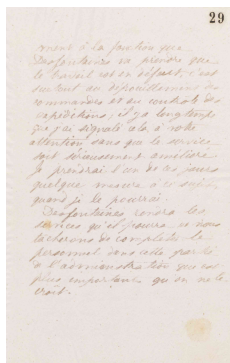 29
ment à la fonction que
Desfontaines va prendre que
le travail est en défaut, c'est
surtout au dépouillement des
commandes et au contrôle des
expéditions, il y a longtemps
que j'ai signalé cela à votre
attention sans que le service
soit sérieusement amélioré
Je prendrai l'un de ces jours
quelque mesure à ce sujet
quand je le pourrai.
Desfontaines rendra les
services qu'il pourra et nous
tacherons de completer le
personnel dans cette partie
de l'administration qui est
plus importante qu'on ne le
croit.